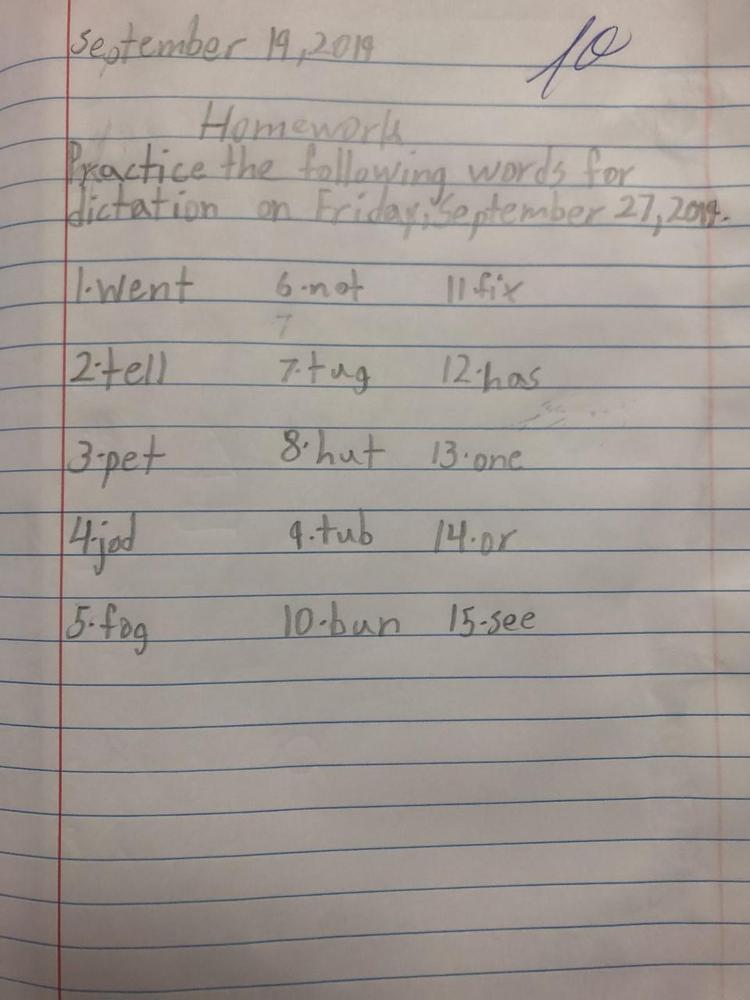 september 19, 2019 10
Homework
Practice the following words for
dictation on Friday, September 27, 2019.
1. went 6. not 11. fix
7
2. tell 7. tug 12. has
3. pet 8. hut 13. one
4. jod 9. tub 14. or
5. fog 10. bun 15. see